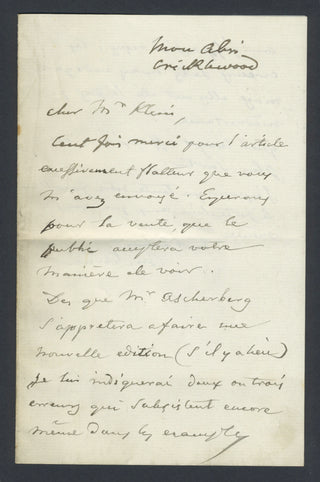 Mon Abri
Cricklewood
Cher Mr Klein,
Cent fois merci pour l'article
excessivement flatteur que vous
m'avez envoyé. Espérons
pour la vente, que le
public acceptera votre
manière de voir..
Des que Mr. Ascherberg
s'appretera a faire une
nouvelle edition (s'il y a lieu)
je lui indiquerai deux ou trois
erreurs qui subsistent encore
même dans les exemples